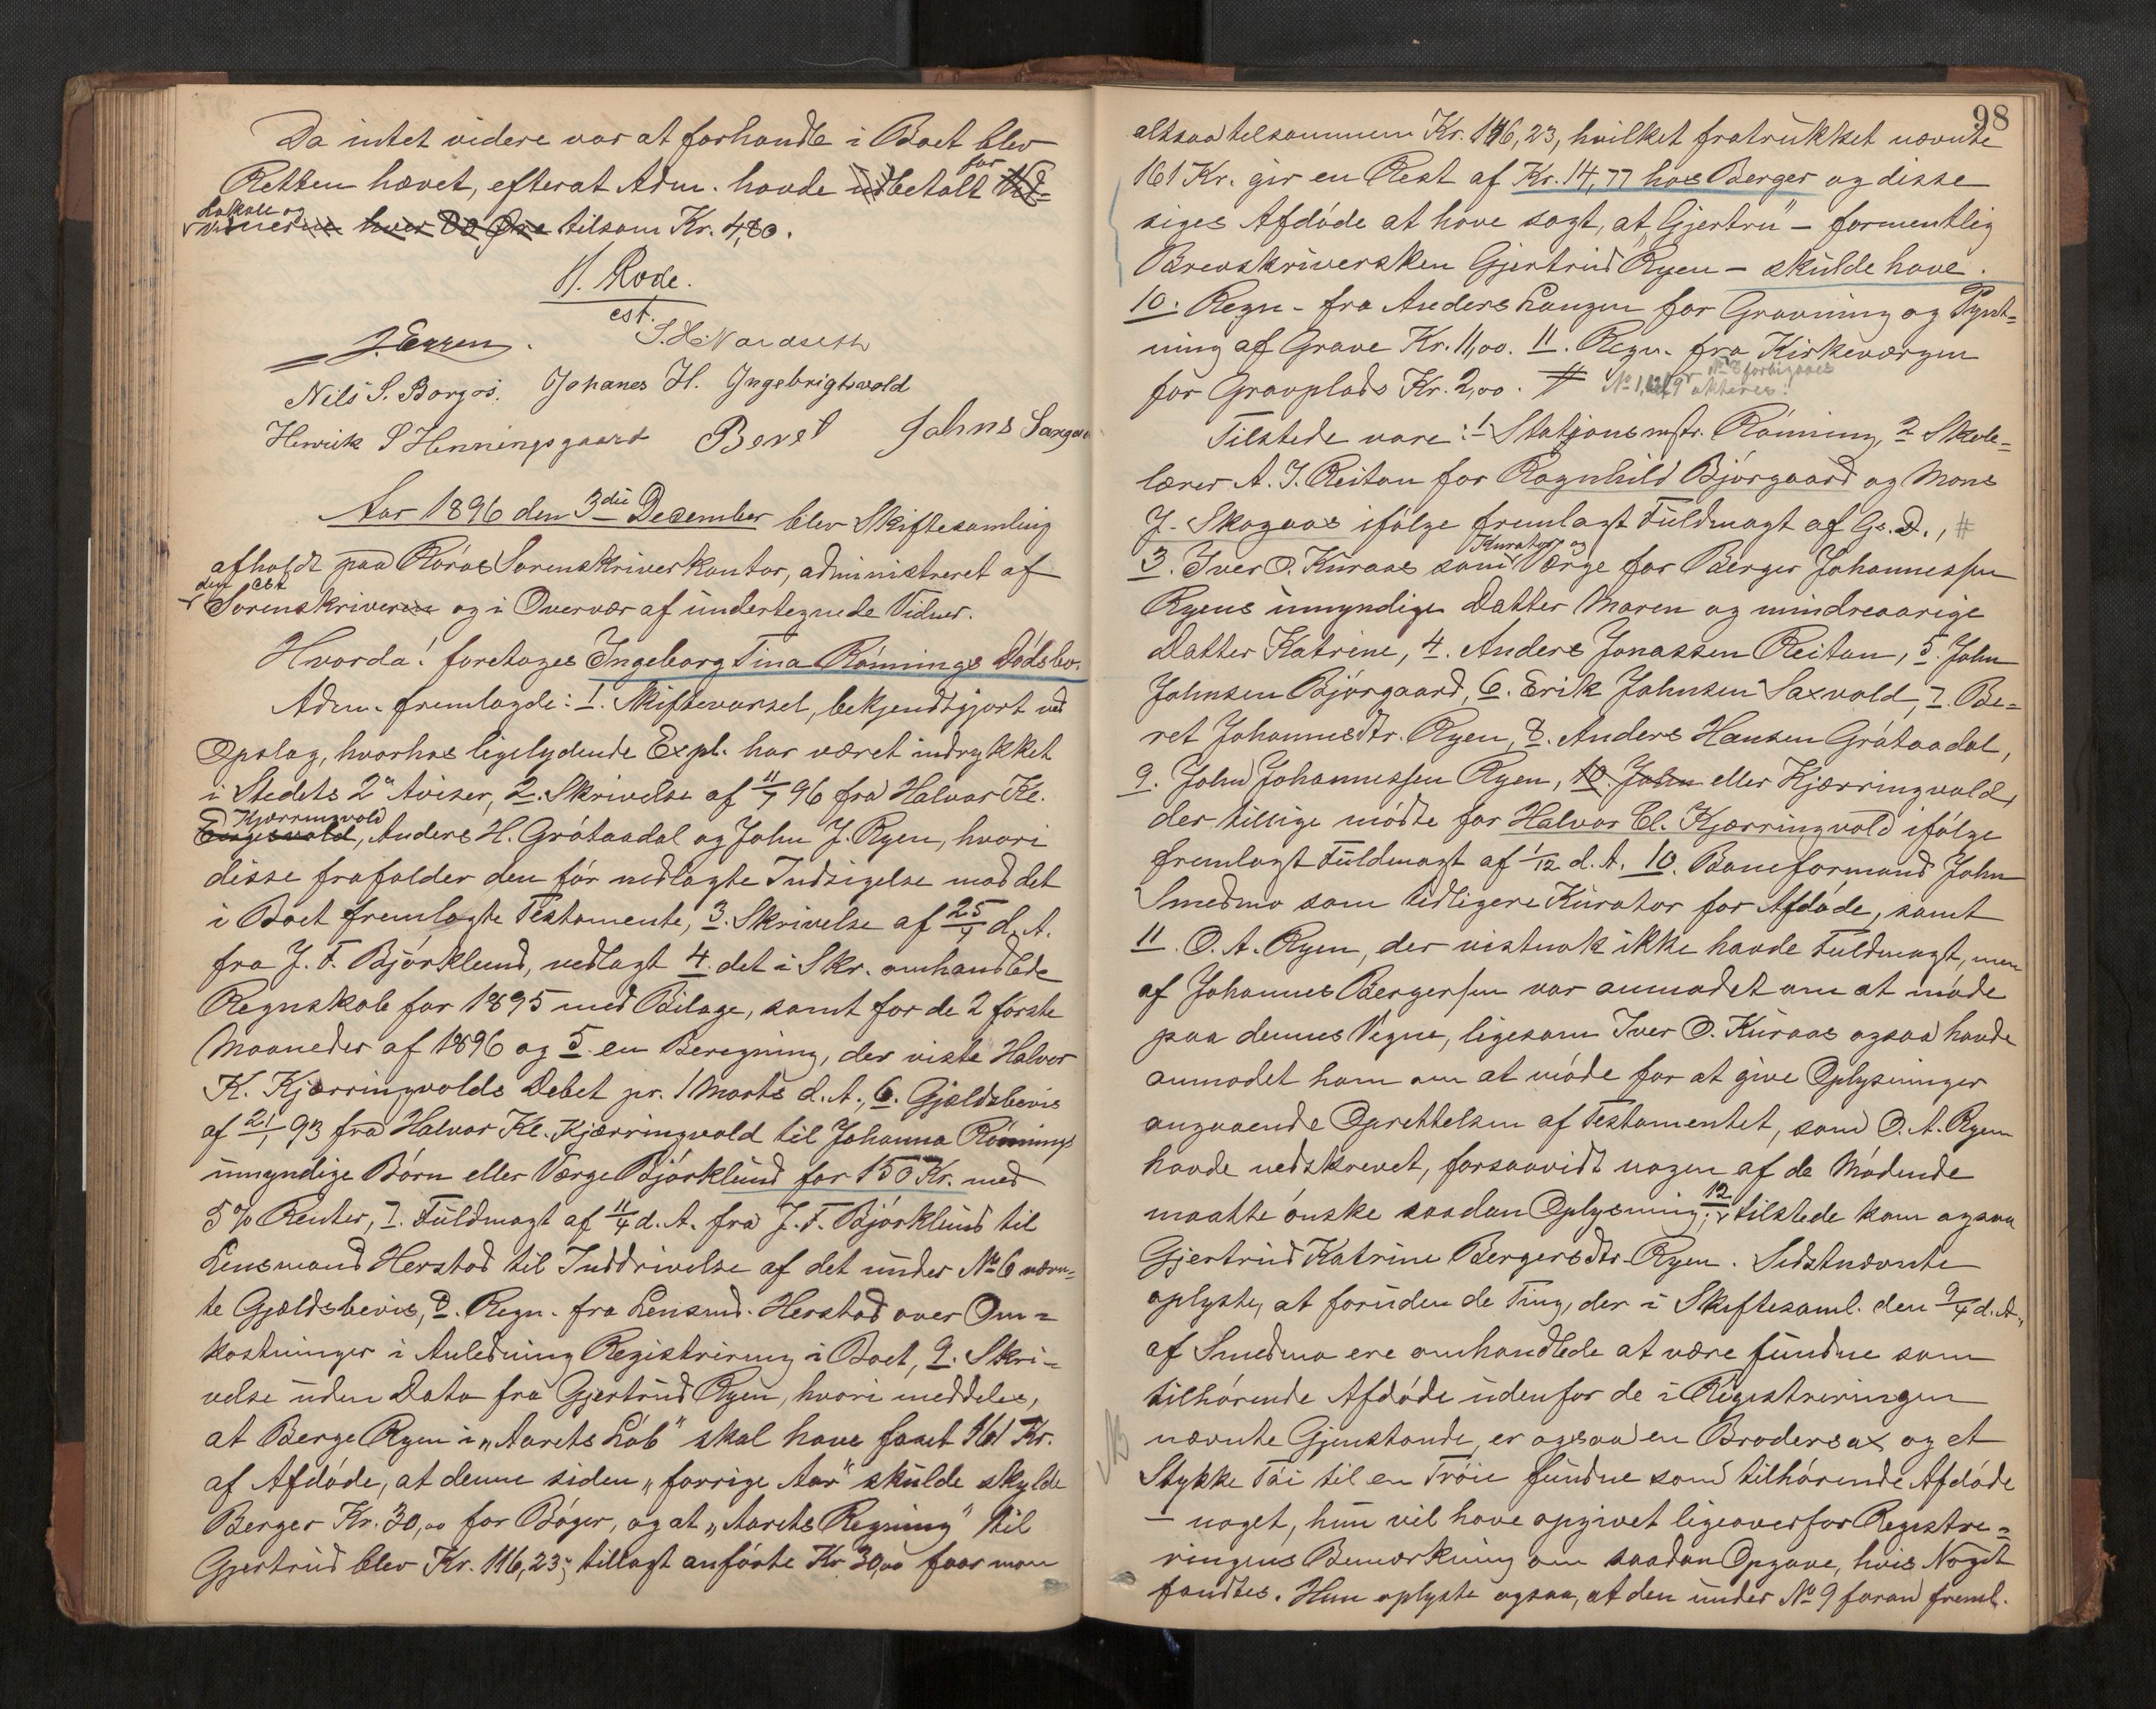 Da intet videre var at forhandle i Boet blev
Retten hævet, efterat Adm. havde udbetalt for Vid-
Lokale og
Vidnerne hver 80 Øre tilsam Kr. 4,80.
H. Rode.
est.
J. Engzen. S. H. Nordseth
Nils S. Borgos. Johanes H. Ingebrigtsvold
Henrik S Henningsgaard Beret Johns
Aar 1896 den 3die December blev Skiftesamling
afholdt paa Röros Sorenskriverkontor, administreret af
den cst
Sorenskriveren og i Overvær af undertegnede Vidner.
Hvorda! foretoges Ingeborg Tina Rönnings Dödsbo.
Adm. fremlagde: 1. Skiftevarsel, bekjendtgjort ved
Opslag, hvorhos ligelydende Expl. har været indrykket
i Stedets 2de Aviser, 2. Skrivelse af 11/7 96 fra Halvor Kl.
Kjærringvold
Engesvold, Anders H. Gråtaadal og John J. Ryen, hvori
disse frafalder den för nedlagte Indsigelse mod det
i Boet fremlagte Testamente, 3. Skrivelse af 25/4 d. A.
fra J. F. Björklund, vedlagt 4. det i Skr. omhandlede
Regnskab for 1895 med Bilage, samt for de 2 förste
Maaneder af 1896 og 5. en Beregning, der viste Halvor
K. Kjærringvolds Debet pr. 1 Marts d. A., 6. Gjældsbevis
af 21/1 93 fra Halvor Kl. Kjærringvold til Johanna Rönnings
umyndige Börn eller Værge Björklund for 150 Kr. med
5 % Renter, 7. Fuldmagt af 11/4 d. A. fra J. F. Björklund til
Lensmand Herstad til Inddrivelse af det under No 6 nævn-
te Gjældsbevis, 8. Regn. fra Lensmd. Herstad over Om-
kostninger i Anledning Registrering i Boet, 9. Skri-
velse uden Dato fra Gjertrud Ryen, hvori meddeles,
at Berge Ryen i „Aarets Löb" skal have faaet 161 Kr.
af Afdöde, at denne siden „forrige Aar" skulde skylde
Berger Kr. 30,00 for Böger, og at „Aarets Regning" til
Gjertrud blev Kr. 116,23; tillagt anförte Kr. 30,00 faar man
98
altsaa tilsammen Kr. 146,23, hvilket fratrukket nævnte
161 Kr. gir en Rest af Kr. 14,77 hos Berger og disse
siges Afdöde at have sagt, at „Gjertru" – formentlig
Brevskriversken Gjertrud Ryen – skulde have.
10. Regn. fra Anders Langen for Gravning og Pynt-
ning af Grave Kr. 11,00. 11. Regn. fra Kirkeværgen
for Gravplads Kr. 2,00. #
No 8 forbigaaes
Tilstede vare: 1 Stationsmstr. Rönning, 2 Skole-
lærer A. J. Reitan for Ragnhild Björgaard og Mons
J. Skogaas ifölge fremlagt Fuldmagt af Gs. D., #
Kurator og
3. Iver O. Kuraas som Værge for Berger Johannessen
Ryens umyndige Datter Maren og mindreaarige
Datter Katrine, 4. Anders Jonassen Reitan, 5. John
Johnsen Björgaard, 6. Erik Johnsen Saxvold, 7. Be-
ret Johannesdtr. Ryen, 8. Anders Hansen Gråtaadal,
9. John Johannessen Ryen, 10. John eller Kjærringvold,
der tillige mödte for Halvor Cl. Kjærringvold ifölge
fremlagt Fuldmagt af 1/12 d. A. 10. Baneformand John
Smedmo som tidligere Kurator for Afdöde, samt
11. O. A. Ryen, der vistnok ikke havde Fuldmagt, men
af Johannes Bergersen var anmodet om at möde
paa dennes Vegne, ligesom Iver O. Kuraas ogsaa havde
anmodet ham om at möde for at give Oplysninger
angaaende Oprettelsen af Testamentet, som O. A. Ryen
havde nedskrevet, forsaavidt nogen af de Mödende
maatte önske saadan Oplysning; 12 tilstede kom ogsaa
Gjertrud Katrine Bergersdtr. Ryen. Sidstnævnte
oplyste, at foruden de Ting, der i Skiftesaml. den 9/4 d. A.,
af Smedmo ere omhandlede at være fundne som
tilhörende Afdöde udenfor de i Registreringen
nævnte Gjenstande, er ogsaa en Brodersax og et
Stykke Töi til en Tröie fundne som tilhörende Afdöde
– noget, hun vil have opgivet ligeoverfor Registre-
ringens Bemærkning om saadan Opgave, hvis Noget
fandtes. Hun oplyste ogsaa, at den under No 9 foran freml.